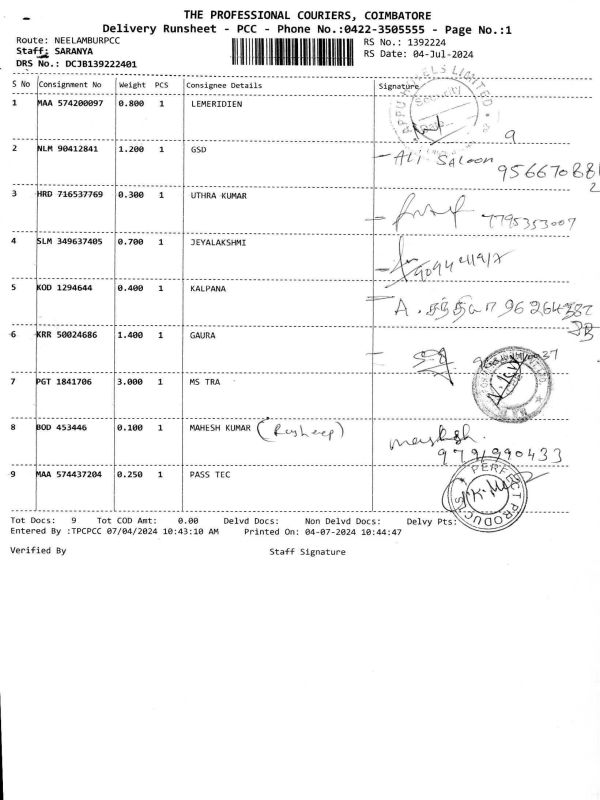 THE PROFESSIONAL COURIERS, COIMBATORE
Delivery Runsheet - PCC - Phone No.:0422-3505555 - Page No.:1
Route: NEELAMBURPCC
RS No.: 1392224
Staff: SARANYA
RS Date: 04-Jul-2024
DRS No.: DCJB139222401
S No Consignment No Weight PCS Consignee Details Signature
1 MAA 574200097 0.800 1 LEMERIDIEN
Security
2 NLM 90412841 1.200 1 GSD
ALI SALOON
3 HRD 716537769 0.300 1 UTHRA KUMAR
7795353007
4 SLM 349637405 0.700 1 JEYALAKSHMI
5 KOD 1294644 0.400 1 KALPANA
6 KRR 50024686 1.400 1 GAURA
7 PGT 1841706 3.000 1 MS TRA
8 BOD 453446 0.100 1 MAHESH KUMAR
9791990433
9 MAA 574437204 0.250 1 PASS TEC
PERFECT PRODUCTS
Tot Docs: 9 Tot COD Amt: 0.00 Delvd Docs: Non Delvd Docs: Delvy Pts:
Entered By :TPCPCC 07/04/2024 10:43:10 AM Printed On: 04-07-2024 10:44:47
Verified By Staff Signature